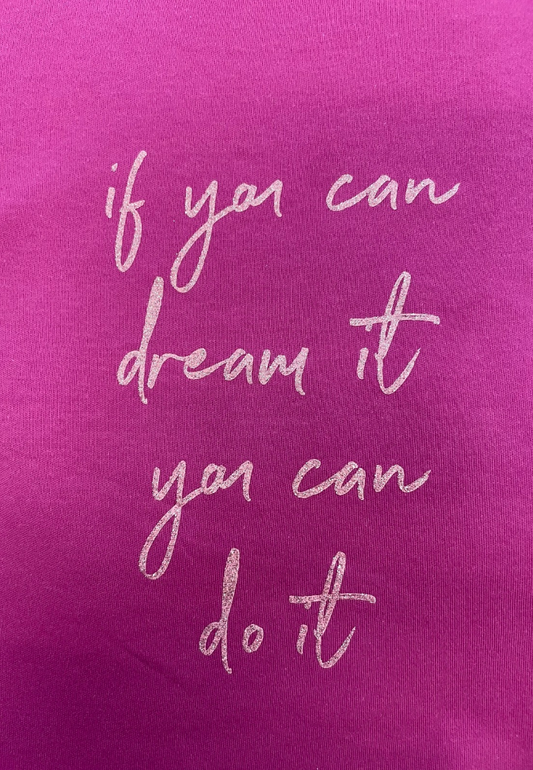 if you can
dream it
you can
do it